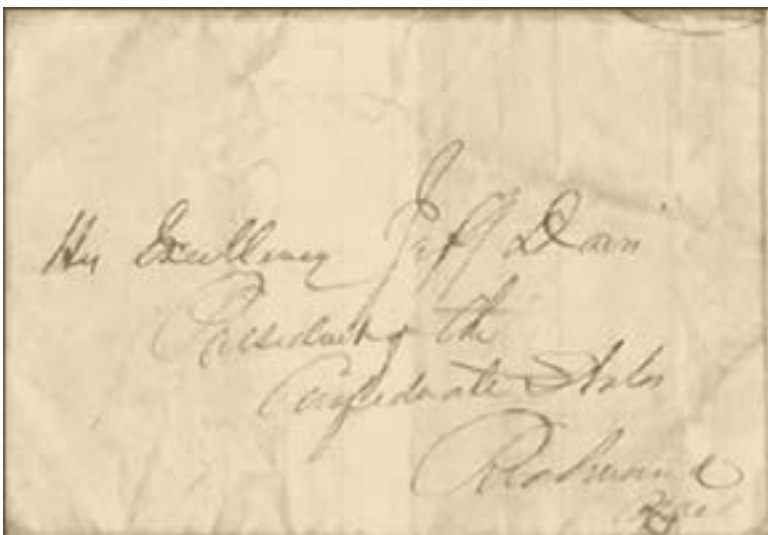 His Excellency Jeff Davis
President of the
Confederate States
Richmond